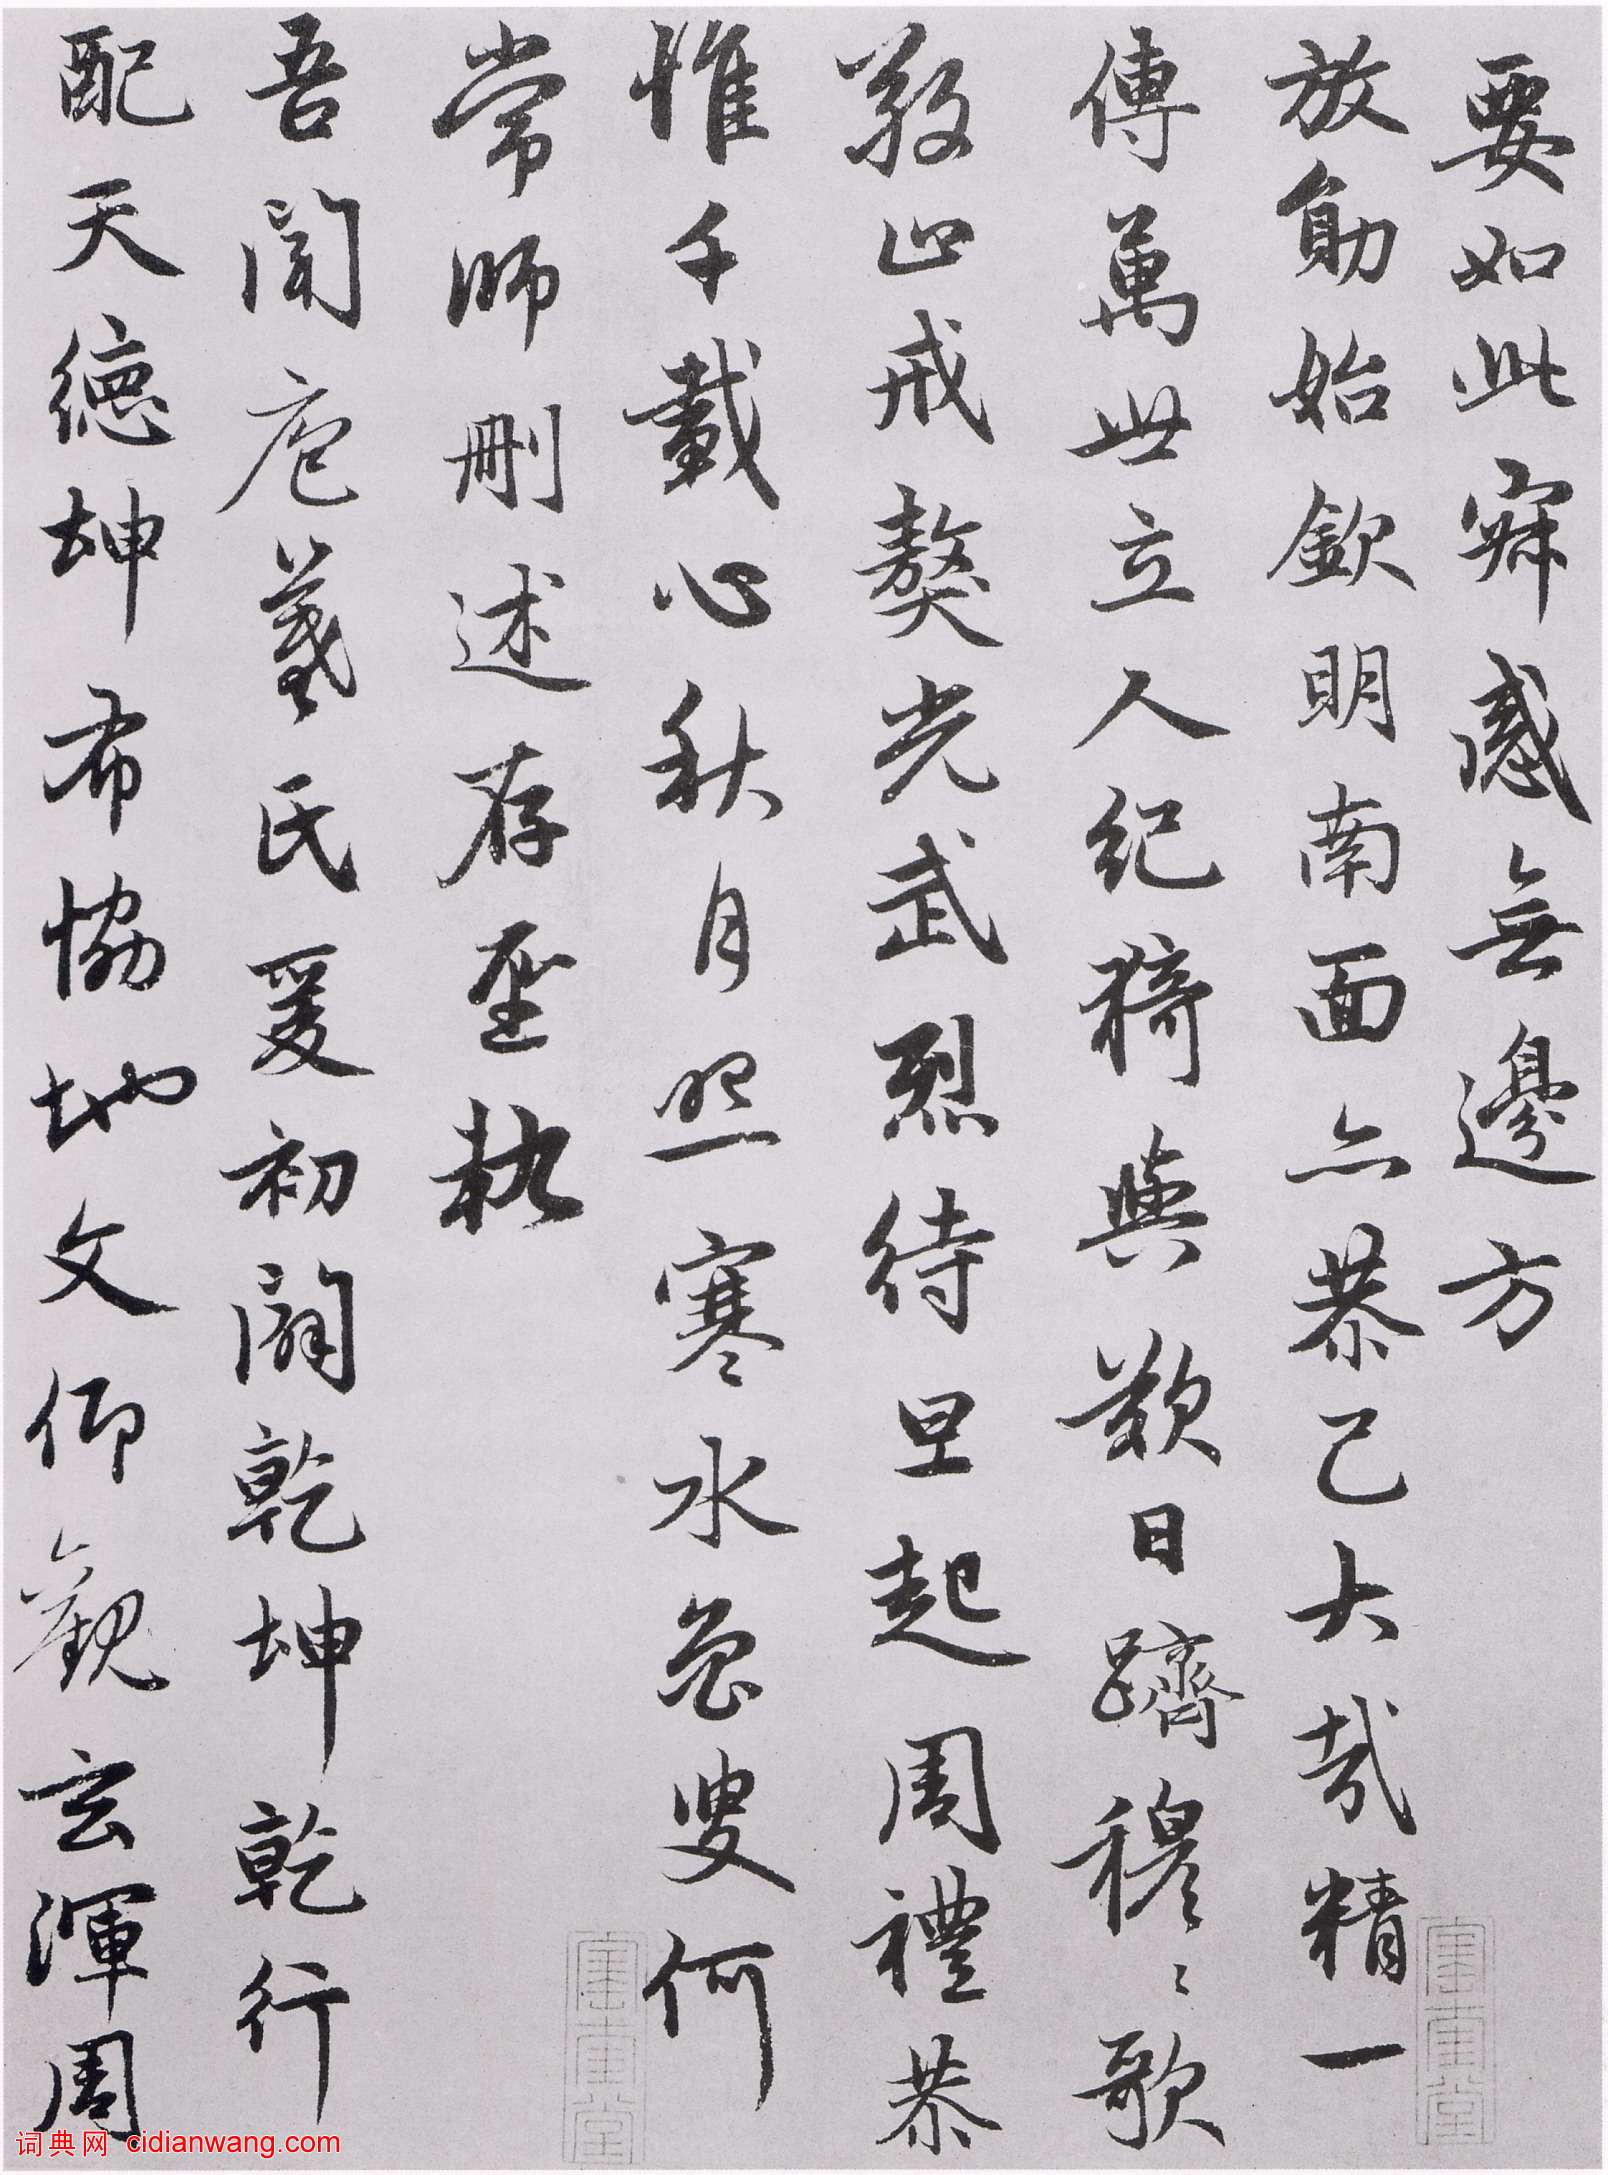 要如此寂感無邊方
放勛始欽明南面亦恭己大哉精一
傳萬世立人紀猗與歎日躋穆〻歌
敬止戒獒光武烈待旦起周禮恭
惟千載心秋月照寒水魯叟何
常師刪述存聖軌
吾聞庖羲氏爰初闢乾坤乾行
配天德坤布協地文仰觀玄渾周
词典网 cidianwang.com